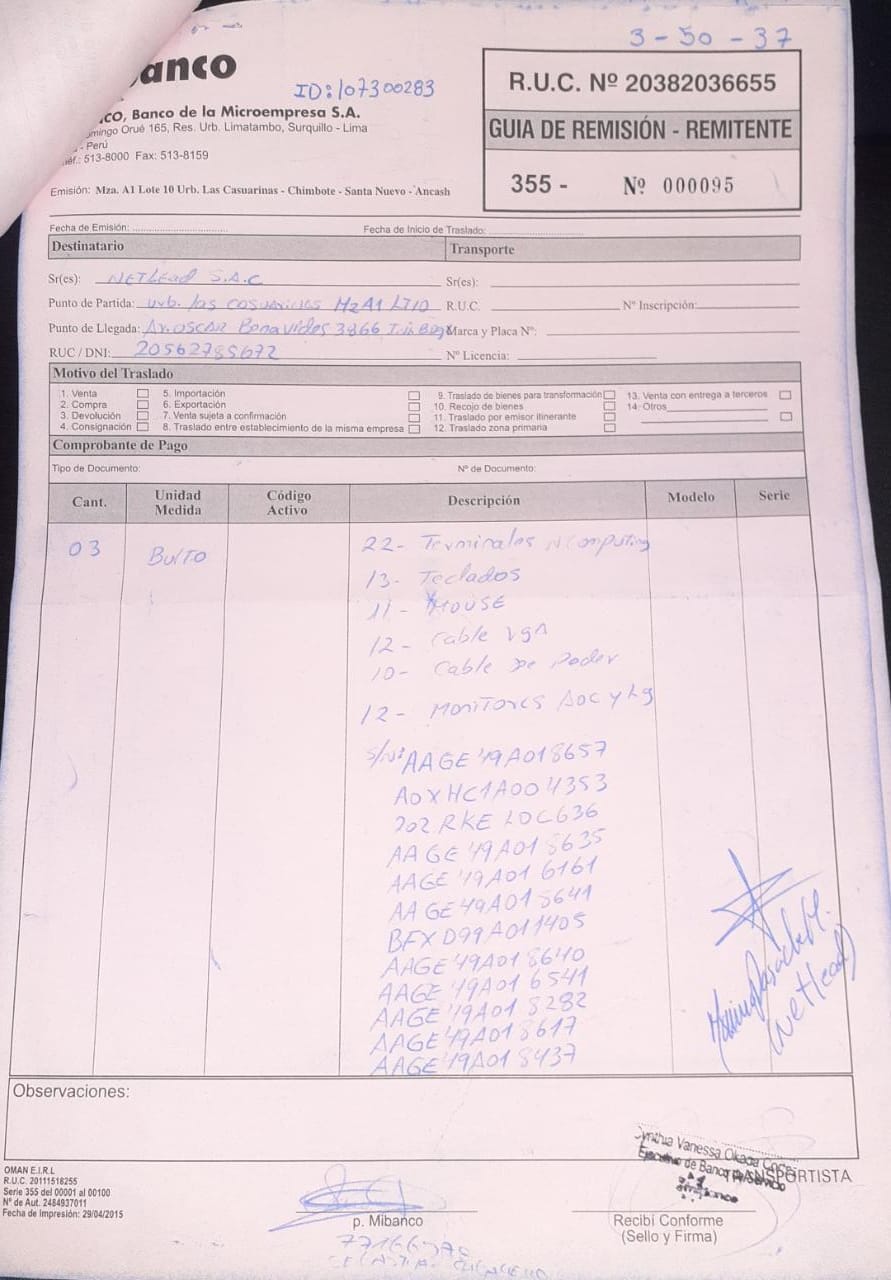 3 - 50 - 37
anco
ID:107300283
R.U.C. Nº 20382036655
CO, Banco de la Microempresa S.A.
GUIA DE REMISIÓN - REMITENTE
omingo Orué 165, Res. Urb. Limatambo, Surquillo - Lima
- Perú
Telf.: 513-8000 Fax: 513-8159
355 - Nº 000095
Emisión: Mza. A1 Lote 10 Urb. Las Casuarinas - Chimbote - Santa Nuevo - Ancash
Fecha de Emisión: Fecha de Inicio de Traslado:
Destinatario Transporte
Sr(es): NETLead S.A.C Sr(es):
Punto de Partida: Urb. las casuarinas MzA1 LT10 R.U.C. Nº Inscripción:
Punto de Llegada: Av. OSCAR Benavides 3866 Marca y Placa Nº:
RUC / DNI: 20562785672 Nº Licencia:
Motivo del Traslado
1. Venta 5. Importación 9. Traslado de bienes para transformación 13. Venta con entrega a terceros
2. Compra 6. Exportación 10. Recojo de bienes 14. Otros
3. Devolución 7. Venta sujeta a confirmación 11. Traslado por emisor itinerante
4. Consignación 8. Traslado entre establecimiento de la misma empresa 12. Traslado zona primaria
Comprobante de Pago
Tipo de Documento: Nº de Documento:
Cant. Unidad Medida Código Activo Descripción Modelo Serie
03 BulTO 22- Terminales NComputing
13- Teclados
11- MOUSE
12- Cable VGA
10- Cable De Poder
12- MoniTores Aoc y Lg
S/N: AAGE49A018657
AOXHC1A004353
202RKELOC636
AAGE49A018635
AAGE49A016161
AAGE49A018641
BFXD99A011405
AAGE49A018640
AAGE49A016541
AAGE49A018282
AAGE49A018617
AAGE49A018437
(NetLead)
Observaciones:
Cynthia Vanessa Okada
Ejecutivo de Banca
TRANSPORTISTA
OMAN E.I.R.L
R.U.C. 20111518255
Serie 355 del 00001 al 00100
Nº de Aut. 2484937011
Fecha de Impresión: 29/04/2015
p. Mibanco
Recibí Conforme
(Sello y Firma)